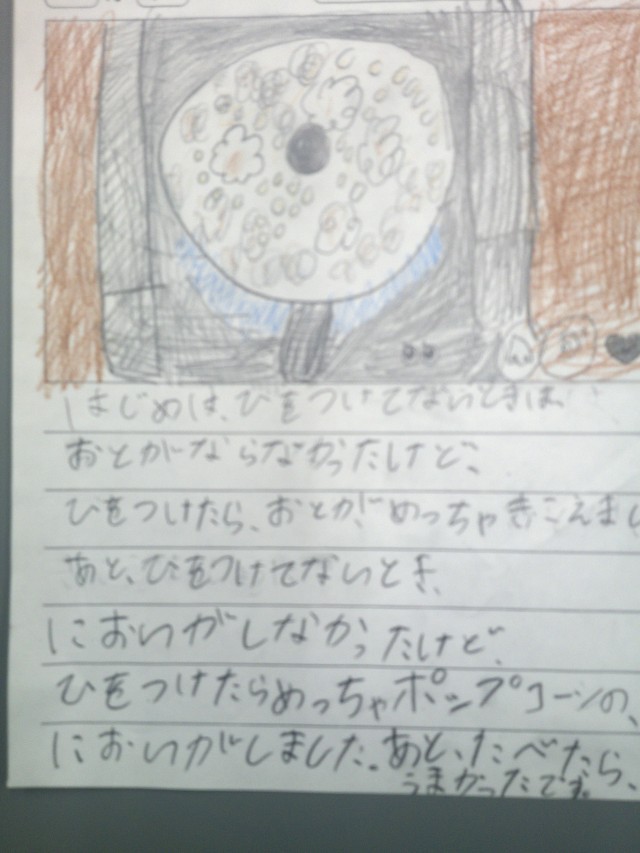 はじめは、ひをつけてないときは、
おとがならなかったけど、
ひをつけたら、おとが、めっちゃきこえまし
あと、ひをつけてないとき、
においがしなかったけど、
ひをつけたらめっちゃポップコーンの、
においがしました。あと、たべたら、
うまかったです。